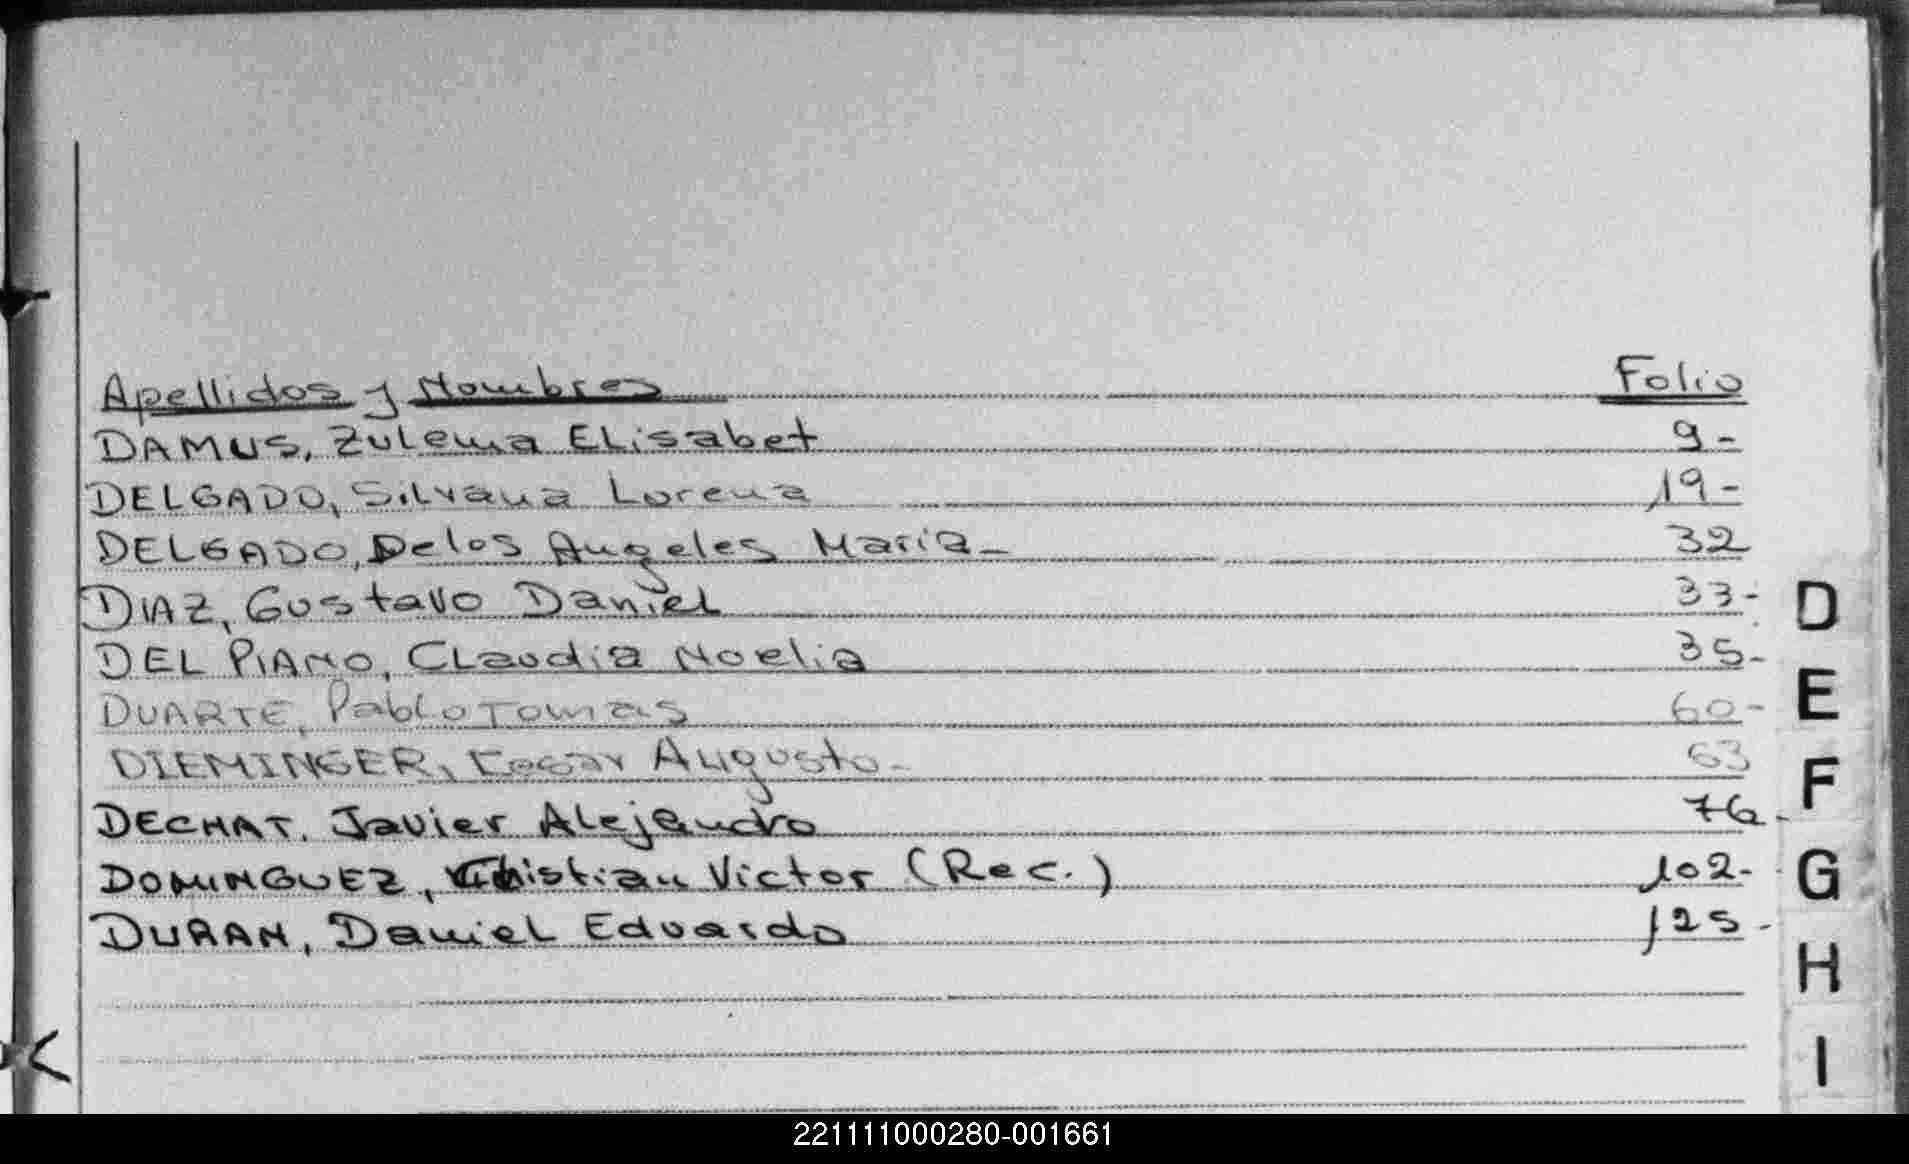 Apellidos y Nombres Folio
DAMUS, Zulema ELisabet 9-
DELGADO, Silvana Lorena 19-
DELGADO, Delos Angeles Maria- 32
DIAZ, Gustavo Daniel 33-
DEL PIANO, CLaudia Noelia 35-
DUARTE, Pablo Tomas 60-
DIEMINGER, Augusto- 63
DECHAT, Javier Alejandro 76-
DOMINGUEZ, Christian Victor (Rec.) 102-
DURAN, Daniel Eduardo 125-
D
E
F
G
H
I
221111000280-001661